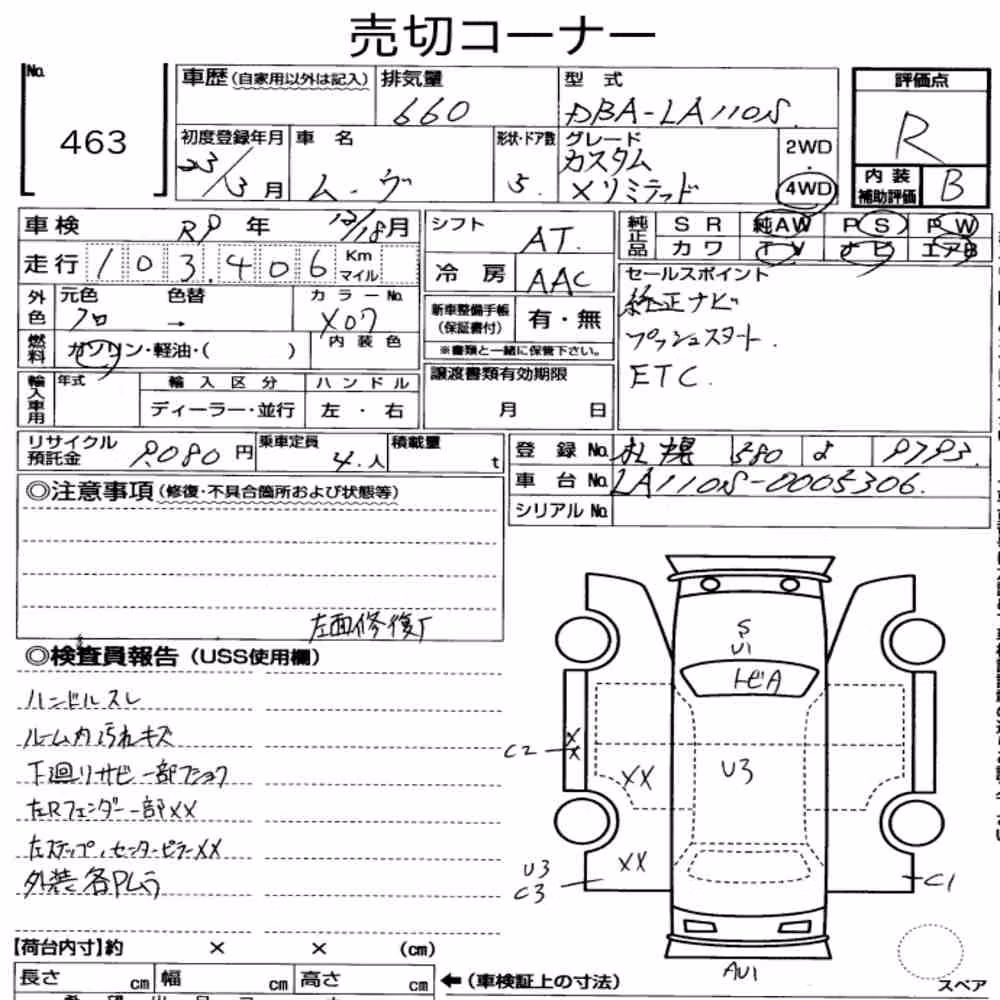 売切コーナー
No.
463
車歴(自家用以外は記入)
排気量
660
型 式
DBA-LA110S
評価点
R
内装補助評価
B
初度登録年月
23/3月
車 名
ムーヴ
形状・ドア数
5
グレード
カスタム
Xリミテッド
2WD
4WD
車検
R9年 12/18月
シフト
AT.
純正品
SR 純AW PS PW
カワ TV ナビ エアB
走行
103,406 Km マイル
冷房
AAC
セールスポイント
純正ナビ
プッシュスタート.
ETC.
外色
元色
色替
カラーNo.
クロ → X07
新車整備手帳(保証書付)
有・無
※書類と一緒に保管下さい。
燃料
ガソリン・軽油・( )
内装色
輸入車用
年式
輸入区分
ハンドル
ディーラー・並行
左・右
譲渡書類有効期限
月 日
リサイクル預託金
9,080円
乗車定員
4.人
積載量
t
登録No.
札幌 580 よ 9793.
車台No.
LA110S-0005306.
シリアルNo.
◎注意事項(修復・不具合箇所および状態等)
左面修復厂
◎検査員報告(USS使用欄)
ハンドルスレ
ルーム内汚れキズ
下廻りサビ一部フショク
左Rフェンダー一部XX
左ステップ、センターピラーXX
外装各Pムラ
S
U1
トビA
U3
XX
XX
X
X
C2
U3
C3
C1
AU1
スペア
【荷台内寸】約 × × (cm)
長さ cm 幅 cm 高さ cm
←(車検証上の寸法)